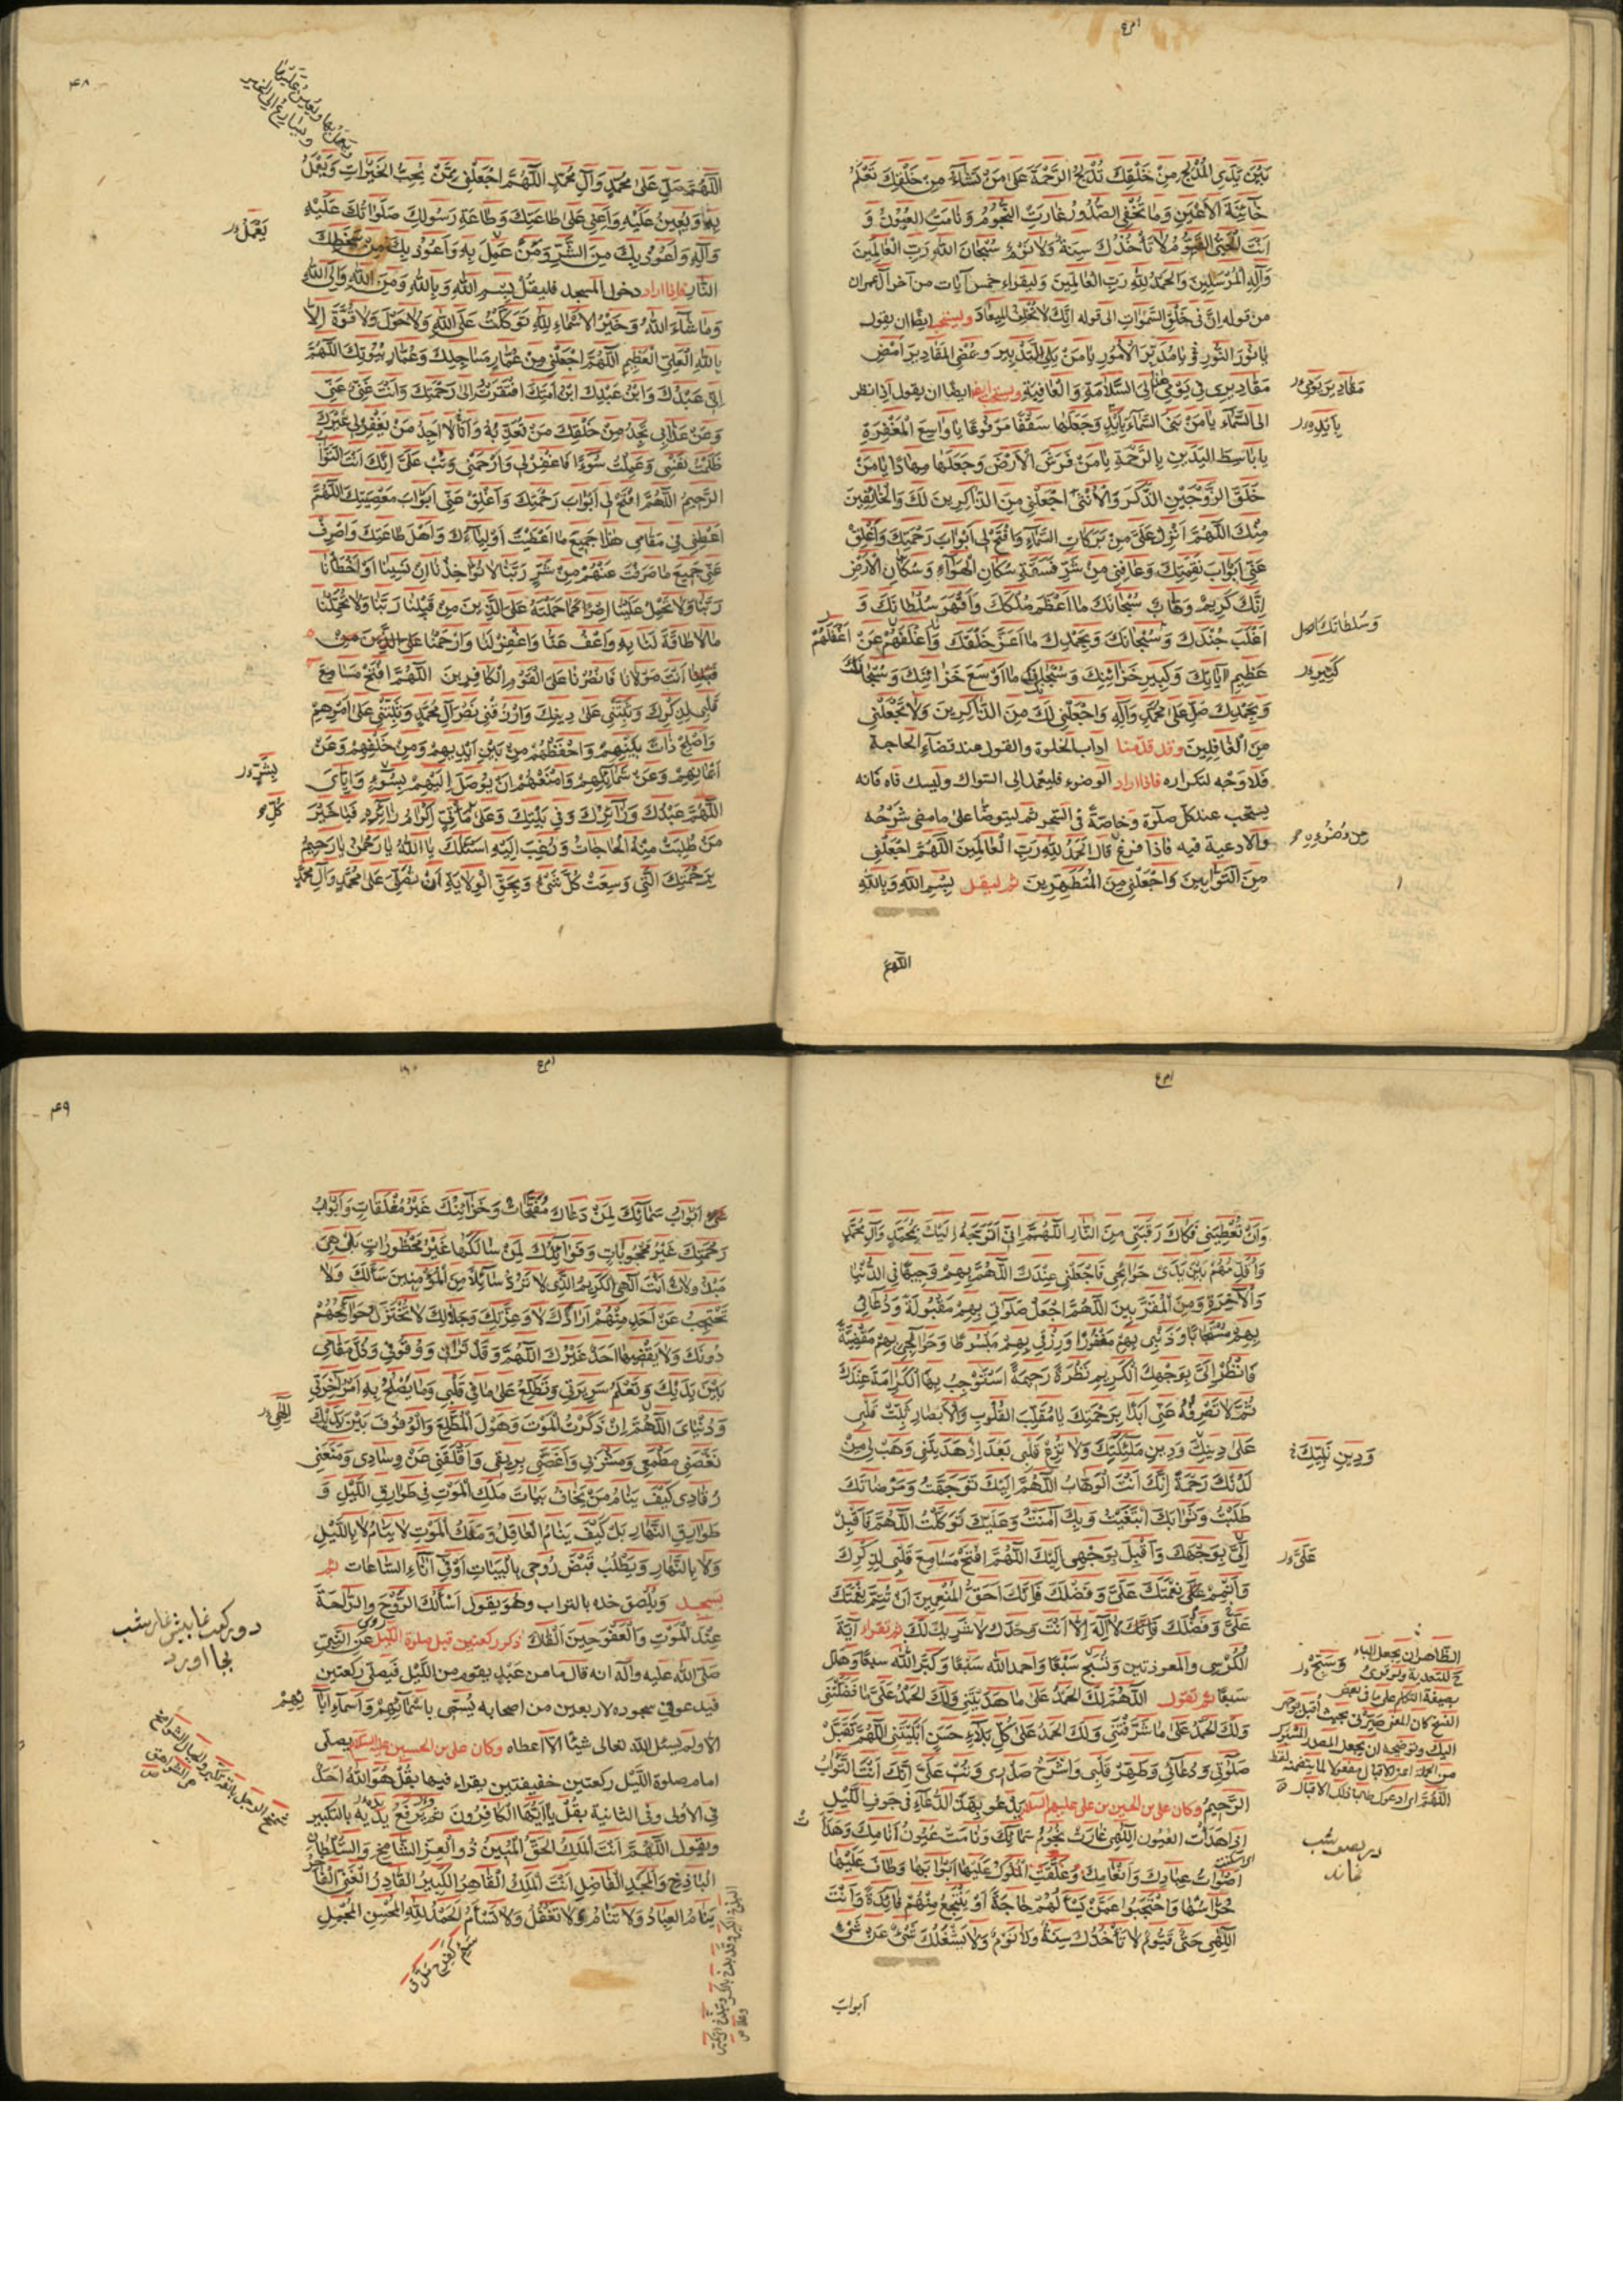 بَيْنَ يَدَيِ الْمُدْلِجِ مِنْ خَلْقِكَ تُدْلِجُ الرَّحْمَةَ عَلىٰ مَنْ تَشَآءُ مِنْ خَلْقِكَ تَعْلَمُ
خَآئِنَةَ الْأَعْيُنِ وَمَا تُخْفِي الصُّدُورُ غَارَتِ النُّجُومُ وَنَامَتِ الْعُيُونُ وَ
اَنْتَ الْحَيُّ الْقَيُّومُ لَا تَأْخُذُكَ سِنَةٌ وَلَا نَوْمٌ سُبْحَانَ اللهِ رَبِّ الْعَالَمِينَ
وَآلِهِ الْمُرْسَلِينَ وَالْحَمْدُ لِلّٰهِ رَبِّ الْعَالَمِينَ وليقراء خمس آيات من آخر آل عمران
من قوله اِنَّ فِي خَلْقِ السَّمٰوَاتِ الى قوله اِنَّكَ لَا تُخْلِفُ الْمِيعَادَ ويستحب ايضًا ان يقول
يَا نُورَ النُّورِ يَا مُدَبِّرَ الْاُمُورِ يَا مَنْ يَلِي التَّدْبِيرَ وَيُمْضِي الْمَقَادِيرَ اَمْضِ
مَقَادِيرِي فِي يَوْمِي هٰذَا اِلَى السَّلَامَةِ وَالْعَافِيَةِ ايضًا ان يقول اذا نظر
الى السَّمَآءِ يَا مَنْ بَنَى السَّمَآءَ بِاَيْدٍ وَجَعَلَهَا سَقْفًا مَرْفُوعًا يَا وَاسِعَ الْمَغْفِرَةِ
يَا بَاسِطَ الْيَدَيْنِ بِالرَّحْمَةِ يَا مَنْ فَرَشَ الْاَرْضَ وَجَعَلَهَا مِهَادًا يَا مَنْ
خَلَقَ الزَّوْجَيْنِ الذَّكَرَ وَالْاُنْثىٰ اجْعَلْنِي مِنَ الذَّاكِرِينَ لَكَ وَالْخَائِفِينَ
مِنْكَ اَللّٰهُمَّ اَنْزِلْ عَلَيَّ مِنْ بَرَكَاتِ السَّمَآءِ وَافْتَحْ لِي اَبْوَابَ رَحْمَتِكَ وَاَغْلِقْ
عَنِّي اَبْوَابَ نِقْمَتِكَ وَعَافِنِي مِنْ شَرِّ فَسَقَةِ سُكَّانِ الْهَوَآءِ وَسُكَّانِ الْاَرْضِ
اِنَّكَ كَرِيمٌ وَهَّابٌ سُبْحَانَكَ مَا اَعْظَمَ مُلْكَكَ وَاَقْهَرَ سُلْطَانَكَ وَ
اَغْلَبَ جُنْدَكَ وَسُبْحَانَكَ وَبِحَمْدِكَ مَا اَعَزَّ خَلْقَكَ وَ اَغْفَلَهُمْ عَنْ
عَظِيمِ آيَاتِكَ وَكَبِيرِ خَزَائِنِكَ وَسُبْحَانَكَ مَا اَوْسَعَ خَزَائِنَكَ وَسُبْحَانَكَ
وَبِحَمْدِكَ صَلِّ عَلىٰ مُحَمَّدٍ وَآلِهِ وَاجْعَلْنِي لَكَ مِنَ الذَّاكِرِينَ وَلَا تَجْعَلْنِي
مِنَ الْغَافِلِينَ وقد قدّمنا اداب الخلوة والقول عند قضآء الحاجة
فلا وجه لتكراره فاذا اراد الوضوء فليعمد الى السّواك وليسك فاه فانه
يستحب عند كلّ صلوة وخاصّةً في السّحر ثم ليتوضّا على ما مضى شرحه
والادعية فيه فاذا فرغ قال اَلْحَمْدُ لِلّٰهِ رَبِّ الْعَالَمِينَ اَللّٰهُمَّ اجْعَلْنِي
مِنَ التَّوَّابِينَ وَاجْعَلْنِي مِنَ الْمُتَطَهِّرِينَ ثم ليقل بِسْمِ اللهِ وَبِاللهِ
اللّٰهُمَّ
بِاَيْدٍ
وَسُلْطَانَكَ
كَثِيرِ
من وُضُوئِهِ
٤٨
اَللّٰهُمَّ صَلِّ عَلىٰ مُحَمَّدٍ وَآلِ مُحَمَّدٍ اَللّٰهُمَّ اجْعَلْنِي مِمَّنْ يُحِبُّ الْخَيْرَاتِ وَيَعْمَلُ
بِهَا وَيُعِينُ عَلَيْهِ وَاَعِنِّي عَلىٰ طَاعَتِكَ وَطَاعَةِ رَسُولِكَ صَلَوَاتُكَ عَلَيْهِ
وَآلِهِ وَاَعُوذُ بِكَ مِنَ الشَّرِّ وَمَنْ عَمِلَ بِهِ وَاَعُوذُ بِكَ مِنْ سَخَطِكَ
النَّارِ فاذا اراد دخول المسجد فليقل بِسْمِ اللهِ وَبِاللهِ وَمِنَ اللهِ وَاِلَى اللهِ
وَمَا شَآءَ اللهُ وَخَيْرُ الْاَسْمَاءِ لِلّٰهِ تَوَكَّلْتُ عَلَى اللهِ وَلَا حَوْلَ وَلَا قُوَّةَ اِلَّا
بِاللهِ الْعَلِيِّ الْعَظِيمِ اَللّٰهُمَّ اجْعَلْنِي مِنْ عُمَّارِ مَسَاجِدِكَ وَعُمَّارِ بُيُوتِكَ اَللّٰهُمَّ
اِنِّي عَبْدُكَ وَابْنُ عَبْدِكَ ابْنُ اَمَتِكَ افْتَقَرْتُ اِلىٰ رَحْمَتِكَ وَاَنْتَ غَنِيٌّ عَنِّي
وَعَنْ عَذَابِي تَجِدُ مِنْ خَلْقِكَ مَنْ تُعَذِّبُهُ وَاَنَا لَا اَجِدُ مَنْ يَغْفِرُ لِي غَيْرَكَ
ظَلَمْتُ نَفْسِي وَعَمِلْتُ سُوءًا فَاغْفِرْ لِي وَارْحَمْنِي وَتُبْ عَلَيَّ اِنَّكَ اَنْتَ التَّوَّابُ
الرَّحِيمُ اَللّٰهُمَّ افْتَحْ لِي اَبْوَابَ رَحْمَتِكَ وَاَغْلِقْ عَنِّي اَبْوَابَ مَعْصِيَتِكَ اَللّٰهُمَّ
اَعْطِنِي فِي مَقَامِي هٰذَا جَمِيعَ مَا اَعْطَيْتَ اَوْلِيَآءَكَ وَاَهْلَ طَاعَتِكَ وَاصْرِفْ
عَنِّي جَمِيعَ مَا صَرَفْتَ عَنْهُمْ مِنْ شَرٍّ رَبَّنَا لَا تُؤَاخِذْنَا اِنْ نَسِينَا اَوْ اَخْطَأْنَا
رَبَّنَا وَلَا تَحْمِلْ عَلَيْنَا اِصْرًا كَمَا حَمَلْتَهُ عَلَى الَّذِينَ مِنْ قَبْلِنَا رَبَّنَا وَلَا تُحَمِّلْنَا
مَا لَا طَاقَةَ لَنَا بِهِ وَاعْفُ عَنَّا وَاغْفِرْ لَنَا وَارْحَمْنَا
اَنْتَ مَوْلَانَا فَانْصُرْنَا عَلَى الْقَوْمِ الْكَافِرِينَ اَللّٰهُمَّ افْتَحْ مَسَامِعَ
قَلْبِي لِذِكْرِكَ وَثَبِّتْنِي عَلىٰ دِينِكَ وَارْزُقْنِي نَصْرَ آلِ مُحَمَّدٍ وَثَبِّتْنِي عَلىٰ اَمْرِهِمْ
وَاَصْلِحْ ذَاتَ بَيْنِهِمْ وَاحْفَظْهُمْ مِنْ بَيْنِ اَيْدِيهِمْ وَمِنْ خَلْفِهِمْ وَعَنْ
اَيْمَانِهِمْ وَعَنْ شَمَآئِلِهِمْ وَامْنَعْهُمْ اَنْ يُوصَلَ اِلَيْهِمْ بِسُوءٍ وَاِيَّايَ
اَللّٰهُمَّ عَبْدُكَ وَزَآئِرُكَ وَفِي بَيْتِكَ وَعَلىٰ مَأْتِيٍّ اِكْرَامُ زَائِرِهِ فَيَا خَيْرَ
مَنْ طُلِبَتْ مِنْهُ الْحَاجَاتُ وَرُغِبَ اِلَيْهِ اَسْئَلُكَ يَا اَللهُ يَا رَحْمٰنُ يَا رَحِيمُ
بِرَحْمَتِكَ الَّتِي وَسِعَتْ كُلَّ شَيْءٍ وَبِحَقِّ الْوِلَايَةِ اَنْ تُصَلِّيَ عَلىٰ مُحَمَّدٍ وَآلِ مُحَمَّدٍ
يَعْمَلُ
بِشَرٍّ
كُلِّ
وَاَنْ تُعْطِيَنِي فَكَاكَ رَقَبَتِي مِنَ النَّارِ اَللّٰهُمَّ اِنِّي اَتَوَجَّهُ اِلَيْكَ بِمُحَمَّدٍ وَآلِ مُحَمَّدٍ
وَاُقَدِّمُهُمْ بَيْنَ يَدَيْ حَوَائِجِي فَاجْعَلْنِي عِنْدَكَ اَللّٰهُمَّ بِهِمْ وَجِيهًا فِي الدُّنْيَا
وَالْآخِرَةِ وَمِنَ الْمُقَرَّبِينَ اَللّٰهُمَّ اجْعَلْ صَلٰوتِي بِهِمْ مَقْبُولَةً وَدُعَائِي
بِهِمْ مُسْتَجَابًا وَذَنْبِي بِهِمْ مَغْفُورًا وَرِزْقِي بِهِمْ مَبْسُوطًا وَحَوَائِجِي بِهِمْ مَقْضِيَّةً
فَانْظُرْ اِلَيَّ بِوَجْهِكَ الْكَرِيمِ نَظْرَةً رَحِيمَةً اَسْتَوْجِبُ بِهَا الْكَرَامَةَ عِنْدَكَ
ثُمَّ لَا تَصْرِفْهُ عَنِّي اَبَدًا بِرَحْمَتِكَ يَا مُقَلِّبَ الْقُلُوبِ وَالْاَبْصَارِ ثَبِّتْ قَلْبِي
عَلىٰ دِينِكَ وَدِينِ مَلٰئِكَتِكَ وَلَا تُزِغْ قَلْبِي بَعْدَ اِذْ هَدَيْتَنِي وَهَبْ لِي مِنْ
لَدُنْكَ رَحْمَةً اِنَّكَ اَنْتَ الْوَهَّابُ اَللّٰهُمَّ اِلَيْكَ تَوَجَّهْتُ وَمَرْضَاتَكَ
طَلَبْتُ وَثَوَابَكَ ابْتَغَيْتُ وَبِكَ آمَنْتُ وَعَلَيْكَ تَوَكَّلْتُ اَللّٰهُمَّ فَاَقْبِلْ
اِلَيَّ بِوَجْهِكَ وَاَقْبِلْ بِوَجْهِي اِلَيْكَ اَللّٰهُمَّ افْتَحْ مَسَامِعَ قَلْبِي لِذِكْرِكَ
وَاَتْمِمْ عَلَيَّ نِعْمَتَكَ عَلَيَّ وَفَضْلَكَ فَاِنَّكَ اَحَقُّ الْمُنْعِمِينَ اَنْ تُتِمَّ نِعْمَتَكَ
عَلَيَّ وَفَضْلَكَ فَاِنَّكَ لَا اِلٰهَ اِلَّا اَنْتَ وَحْدَكَ لَا شَرِيكَ لَكَ ثم تقراء آية
الكرسي والمعوذتين وتسبّح سبعًا واحمد الله سبعًا وكبّر الله سبعًا وهلّل
سبعًا ثم تقول اَللّٰهُمَّ لَكَ الْحَمْدُ عَلىٰ مَا هَدَيْتَنِي وَلَكَ الْحَمْدُ عَلىٰ مَا فَضَّلْتَنِي
وَلَكَ الْحَمْدُ عَلىٰ مَا شَرَّفْتَنِي وَلَكَ الْحَمْدُ عَلىٰ كُلِّ بَلَآءٍ حَسَنٍ اَبْلَيْتَنِي اَللّٰهُمَّ تَقَبَّلْ
صَلٰوتِي وَدُعَائِي وَطَهِّرْ قَلْبِي وَاشْرَحْ صَدْرِي وَتُبْ عَلَيَّ اِنَّكَ اَنْتَ التَّوَّابُ
الرَّحِيمُ وكان علي بن الحسين بن علي عليهم السلام يدعو بهذا الدّعآء في جوف اللّيل
اذا هدأت العيون اِلٰهِي غَارَتْ نُجُومُ سَمَآئِكَ وَنَامَتْ عُيُونُ اَنَامِكَ وَهَدَأَتْ
اَصْوَاتُ عِبَادِكَ وَاَنْعَامِكَ وَغَلَّقَتِ الْمُلُوكُ عَلَيْهَا اَبْوَابَهَا وَطَافَ عَلَيْهَا
حُرَّاسُهَا وَاحْتَجَبُوا عَمَّنْ يَسْأَلُهُمْ حَاجَةً اَوْ يَنْتَجِعُ مِنْهُمْ فَائِدَةً وَاَنْتَ
اِلٰهِي حَيٌّ قَيُّومٌ لَا تَأْخُذُكَ سِنَةٌ وَلَا نَوْمٌ وَلَا يَشْغَلُكَ شَيْءٌ عَنْ شَيْءٍ
اَبْوَابُ
وَدِينِ نَبِيِّكَ
عَلَيَّ
وَسَبِّحْ
در نصف شب
بخاند
٤٩
اَبْوَابُ سَمَآئِكَ لِمَنْ دَعَاكَ مُفَتَّحَاتٌ وَخَزَآئِنُكَ غَيْرُ مُغْلَقَاتٍ وَاَبْوَابُ
رَحْمَتِكَ غَيْرُ مَحْجُوبَاتٍ وَفَوَائِدُكَ لِمَنْ سَاَلَكَهَا غَيْرُ مَحْظُورَاتٍ بَلْ هِيَ
مَبْذُولَاتٌ اَنْتَ اِلٰهِي الْكَرِيمُ الَّذِي لَا تَرُدُّ سَآئِلًا مِنَ الْمُؤْمِنِينَ سَأَلَكَ وَلَا
تَحْتَجِبُ عَنْ اَحَدٍ مِنْهُمْ اَرَادَكَ لَا وَعِزَّتِكَ وَجَلَالِكَ لَا تُخْتَزَلُ حَوَائِجُهُمْ
دُونَكَ وَلَا يَقْضِيهَا اَحَدٌ غَيْرُكَ اَللّٰهُمَّ وَقَدْ تَرَانِي وَوُقُوفِي وَذُلَّ مَقَامِي
بَيْنَ يَدَيْكَ وَتَعْلَمُ سَرِيرَتِي وَتَطَّلِعُ عَلىٰ مَا فِي قَلْبِي وَمَا يَصْلُحُ بِهِ اَمْرُ آخِرَتِي
وَدُنْيَايَ اَللّٰهُمَّ اِنْ ذَكَرْتُ الْمَوْتَ وَهَوْلَ الْمُطَّلَعِ وَالْوُقُوفَ بَيْنَ يَدَيْكَ
نَغَّصَنِي مَطْعَمِي وَمَشْرَبِي وَاَغَصَّنِي بِرِيقِي وَاَقْلَقَنِي عَنْ وِسَادِي وَمَنَعَنِي
رُقَادِي كَيْفَ يَنَامُ مَنْ يَخَافُ بَيَاتَ مَلَكِ الْمَوْتِ فِي طَوَارِقِ اللَّيْلِ وَ
طَوَارِقِ النَّهَارِ بَلْ كَيْفَ يَنَامُ الْعَاقِلُ وَمَلَكُ الْمَوْتِ لَا يَنَامُ لَا بِاللَّيْلِ
وَلَا بِالنَّهَارِ وَيَطْلُبُ قَبْضَ رُوحِي بِالْبَيَاتِ اَوْ فِي آنَآءِ السَّاعَاتِ ثم
يسجد ويلصق خده بالتراب وهو يقول اَسْأَلُكَ الرَّوْحَ وَالرَّاحَةَ
عِنْدَ الْمَوْتِ وَالْعَفْوَ حِينَ اَلْقَاكَ ذكر ركعتين قبل صلوة اللّيل روي عن النّبيّ
صلّى الله عليه وآله انه قال ما من عبد يقوم من اللّيل فيصلّي ركعتين
فيدعو في سجوده لاربعين من اصحابه يُسمّي باسمآئهم واسمآء ابآئهم
الّا ولم يسئل الله تعالى شيئًا الّا اعطاه وكان علي بن الحسين عليه السلام يصلّي
امام صلوة اللّيل ركعتين خفيفتين يقراء فيهما بقُلْ هُوَ اللهُ اَحَدٌ
في الاُولى وفي الثانية بقُلْ يَا اَيُّهَا الْكَافِرُونَ ثم يرفع يديه بالتكبير
ويقول اَللّٰهُمَّ اَنْتَ الْمَلِكُ الْحَقُّ الْمُبِينُ ذُو الْعِزِّ الشَّامِخِ وَالسُّلْطَانِ
الْبَاذِخِ وَالْمَجْدِ الْفَاضِلِ اَنْتَ الْمَلِكُ الْقَاهِرُ الْكَبِيرُ الْقَادِرُ الْغَنِيُّ الْفَاخِرُ
يَنَامُ الْعِبَادُ وَلَا تَنَامُ وَلَا تَغْفُلُ وَلَا تَسْأَمُ اَلْحَمْدُ لِلّٰهِ الْمُحْسِنِ الْمُجْمِلِ
اِلٰهِي
دو ركعت نماز پیش از نماز شب
بجا اورد